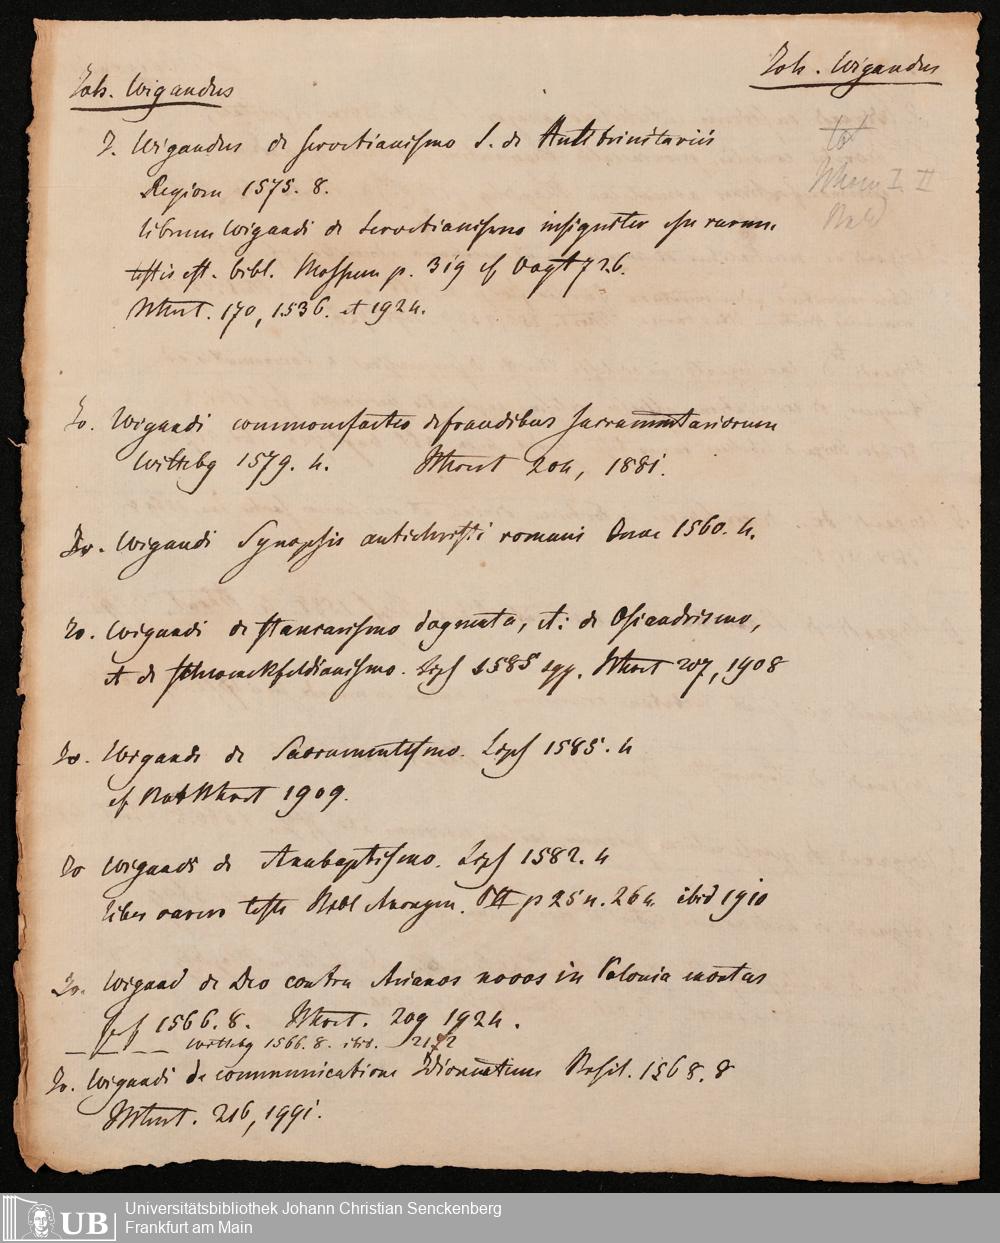 Joh. Wigandus
Joh. Wigandus
tot
I. II
J. Wigandus de Servetianismo s. de Antitrinitariis
Regiom 1575. 8.
librum Wigandi de Servetianismo insigniter esse rarum
testis est. bibl. p. 319 cf Vogt 726.
170, 1536. et 1924.
Jo. Wigandi commonefactio de fraudibus sacramentariorum
Wittebg 1579. 4. 204, 1881.
Jo. Wigandi Synopsis antichristi romani Jenae 1560. 4.
Jo. Wigandi de stancarismo dogmata, et: de Osiandrismo,
et de schwenckfeldianismo. Lips 1585 207, 1908
Jo. Wigandi de Sacramentismo. Lips 1585. 4
cf 1909.
Jo Wigandi de Anabaptismo. Lips 1582. 4
liber rarus teste Bibl p 254. 264. ibid 1910
Jo. Wigand de Deo contra Arianos novos in Polonia exortos
1566. 8. 209 1924.
Wittebg 1566. 8. ibid. 2172
Jo. Wigandi de communicatione Idiomatum Basil. 1568. 8
216, 1991.
UB Universitätsbibliothek Johann Christian Senckenberg
Frankfurt am Main